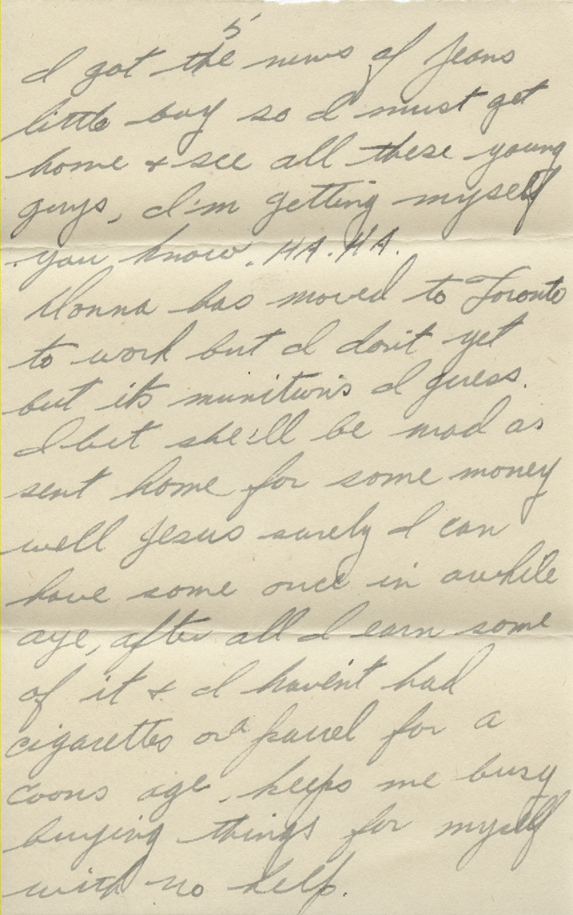 5
I got the news of Jeans
little boy so I must get
home & see all these young
guys, I'm getting myself
you know. HA. HA.
Donna has moved to Toronto
to work but I don't yet
but its munition's I guess.
I bet she'll be mad as
sent home for some money
well Jesus surely I can
have some once in awhile
aye, after all I earn some
of it & I haven't had
cigarettes or a parcel for a
coons age. keeps me busy
buying things for myself
with no help.